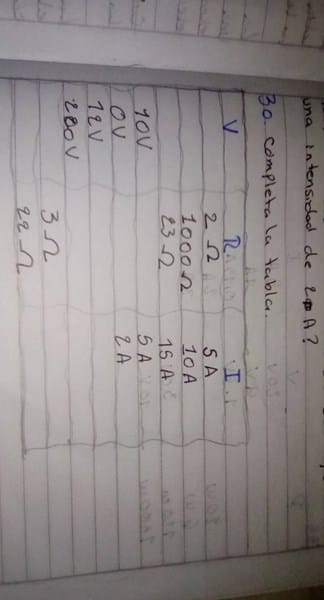 una intensidad de A?
30. Completa la tabla.
V R I
2 Ω 5 A
1000 Ω 10 A
23 Ω 15 A
10V 5 A
0V 2 A
12V
3 Ω
22 Ω